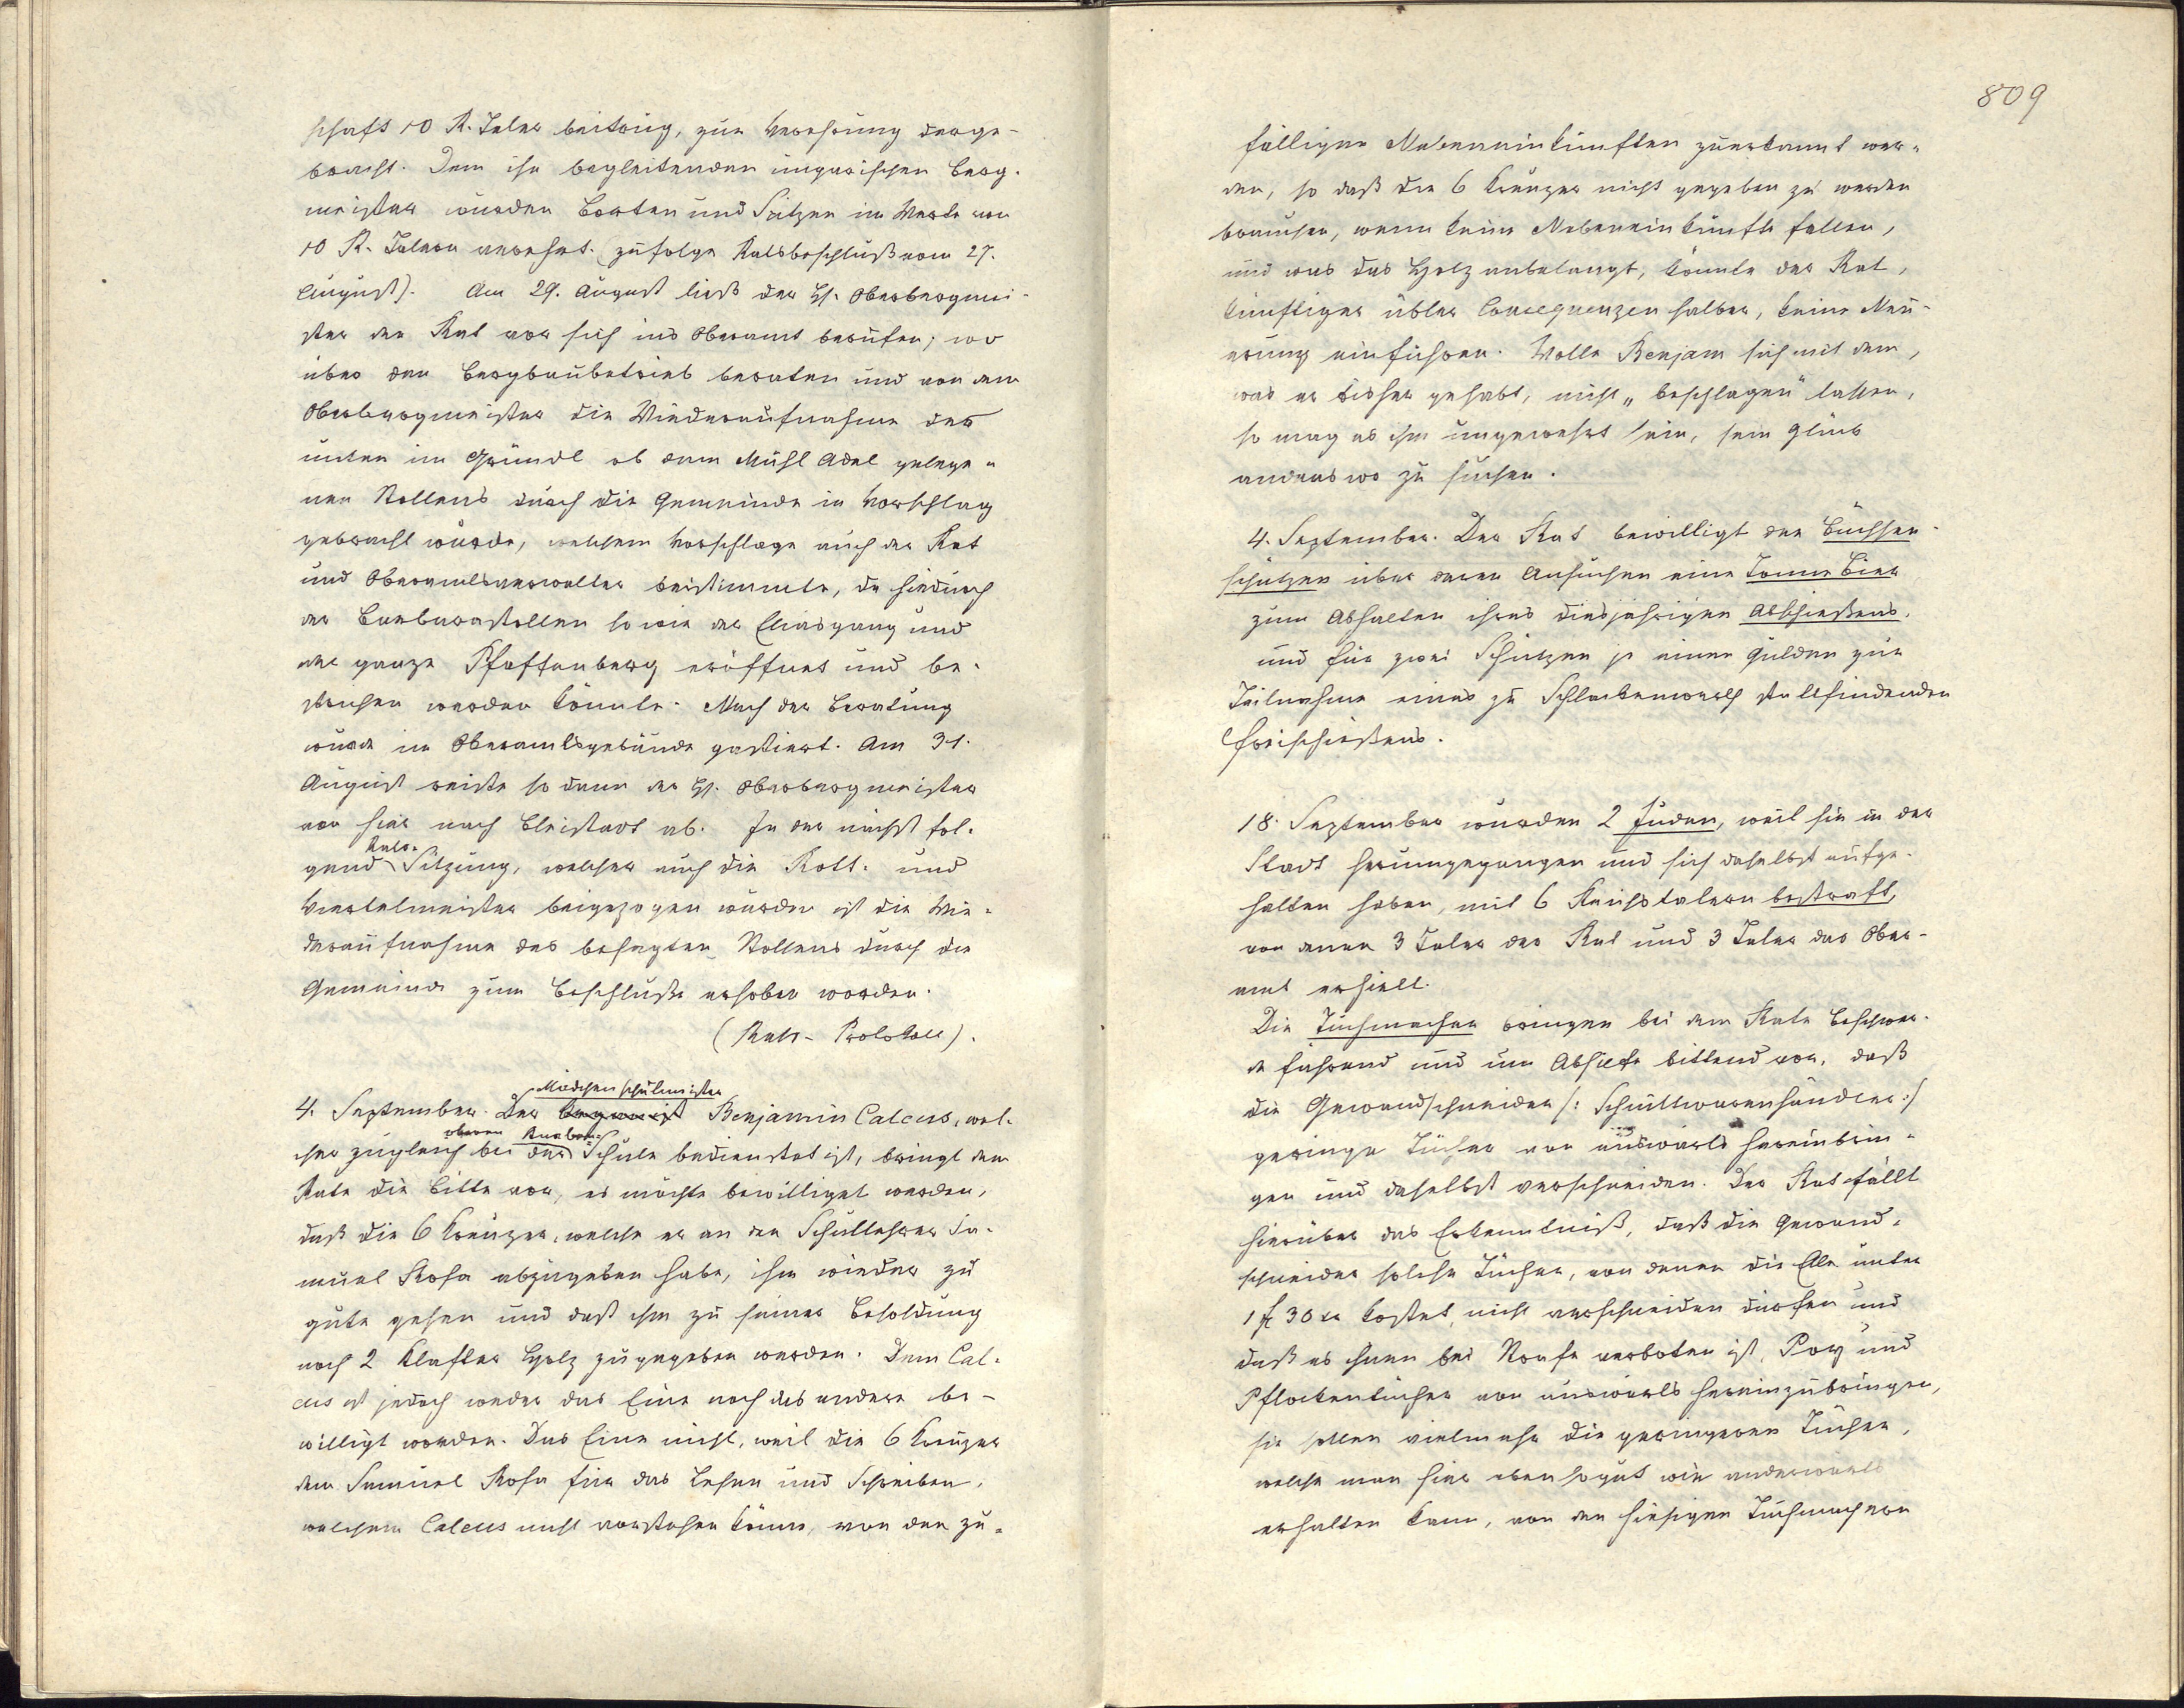 schaft 10 R. Taler beitrug, zur Verehrung darge-
bracht. Dem ihn begleitenden ungarischen Berg-
meister wurden Borten und Spitzen im Werte von
10 R. Talern verehrt. (zufolge Ratsbeschluß vom 27.
August). Am 29. August ließ der H. Oberbergmei-
ster den Rat vor sich ins Oberamt berufen, wo
über den Bergbaubetrieb beraten und von dem
Oberbergmeister die Wiederaufnahme des
unten im Gründl ob dem Mühl Adel gelege-
nen Stollens durch die Gemeinde in Vorschlag
gebracht wurde, welchem Vorschlage auch der Rat
und Oberamtsverwalter beistimmte, da hiedurch
der Barbarastollen sowie der Eliasgang und
der ganze Pfaffenberg eröffnet und be-
strichen werden könnte. Nach der Beratung
wurde im Oberamtsgebäude gastiert. Am 31.
August reiste sodann der H. Oberbergmeister
von hier nach Bleistadt ab. In der nächst fol-
gend Rats-Sitzung, welcher auch die Rott- und
Viertelmeister beigezogen wurden ist die Wie-
deraufnahme des besagten Stollens durch die
Gemeinde zum Beschlusse erhoben worden.
(Rats-Protokoll).
4. September. Der Mädchenschulmeister Benjamin Calcus, wel-
cher zugleich bei der oberen Knaben-Schule bedienstet ist, bringt dem
Rate die Bitte vor, es möchte bewilliget werden,
daß die 6 Kreuzer, welche er an den Schullehrer Sa-
muel Rosa abzugeben habe, ihm wieder zu
gute gehen und daß ihm zu seiner Besoldung
noch 2 Klafter Holz zugegeben werden. Dem Cal-
cus ist jedoch weder das Eine noch das andere be-
willigt worden. Das Eine nicht, weil die 6 Kreuzer
dem Samuel Rosa für das Lesen und Schreiben,
welchem Calcus nicht vorstehen könne, von den zu-
809
fälligen Nebeneinkünften zuerkannt wer-
den, so daß die 6 Kreuzer nicht gegeben zu werden
brauchen, wenn keine Nebeneinkünfte fallen,
und was das Holz anbelangt, könnte der Rat,
künftiger übler Consequenzen halber, keine Neu-
erung einführen. Wolle Benjam sich mit dem,
was er bisher gehabt, nicht „beschlagen" lassen,
so mag es ihm ungewehrt sein, sein Glück
anderswo zu suchen.
4. September. Der Rat bewilligt den Büchsen-
schützen über deren Ansuchen eine Tonne Bier
zum Abhalten ihres diesjährigen Abschießens,
und für zwei Schützen je einen Gulden zur
Teilnahme eines zu Schlackenwerth stattfindenden
Freischießens.
18. September wurden 2 Juden, weil sie in der
Stadt herumgegangen und sich daselbst aufge-
halten haben, mit 6 Reichstalern bestraft,
von denen 3 Taler der Rat und 3 Taler das Ober-
amt erhielt.
Die Tuchmacher bringen bei dem Rate Beschwer-
de führend und um Abhilfe bittend vor, daß
die Gewandschneider /: Schnittwarenhändler :/
geringe Tücher von auswärts hereinbrin-
gen und daselbst verschneiden. Der Rat fällt
hierüber das Erkenntniß, daß die Gewand-
schneider solche Tücher, von denen die Elle unter
1 fl 30 xr kostet, nicht verschneiden dürfen und
daß es ihnen bei Strafe verboten ist, Poy und
Pflockentücher von auswärts hereinzubringen,
sie sollen vielmehr die geringeren Tücher,
welche man hier ebensogut wie anderwärts
erhalten kann, von den hiesigen Tuchmachern